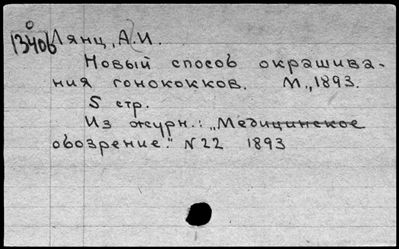 13406 Лянц, А.И.
Новый способ окрашива-
ния гонококков. М., 1893.
5 стр.
Из журн.: „Медицинское
обозрение." N 22 1893